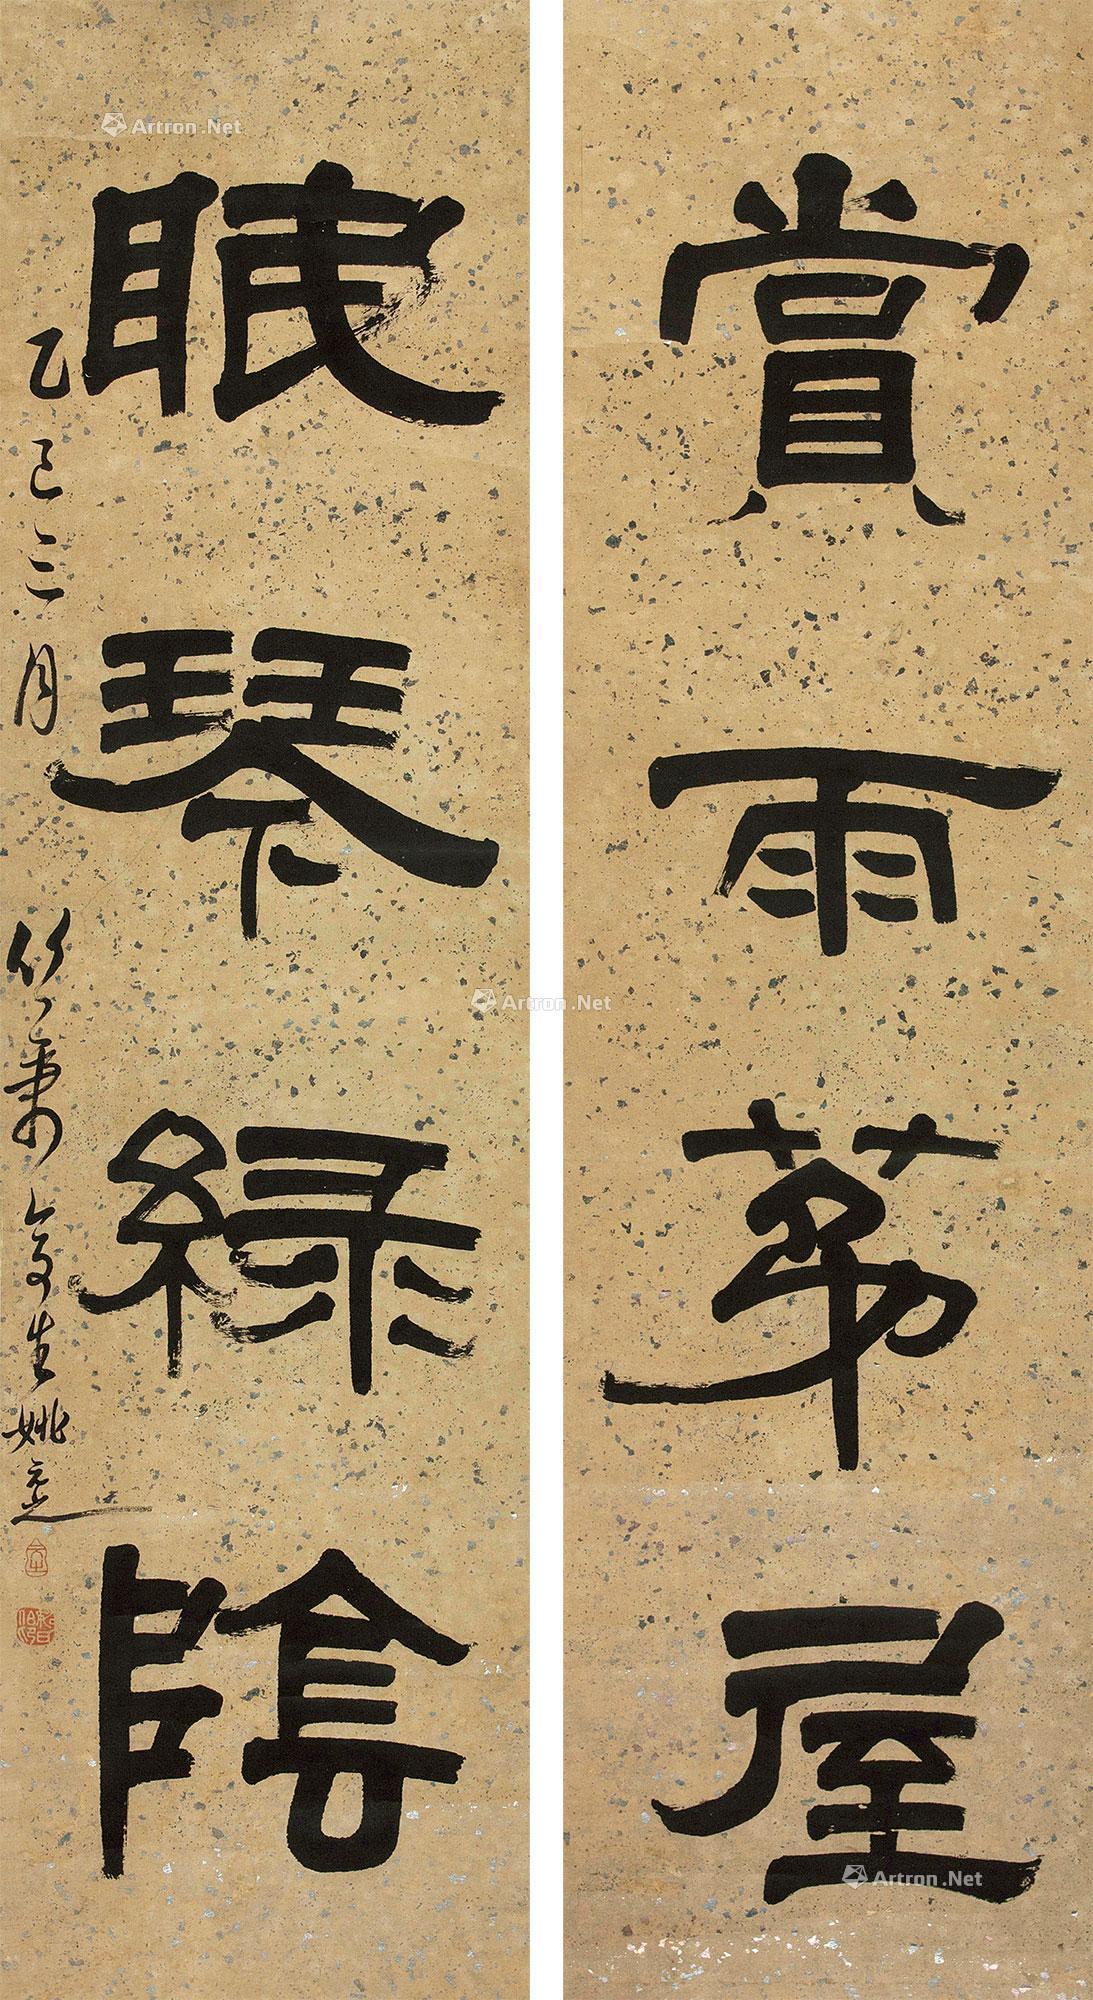 賞雨茅屋
眠琴綠陰
乙巳三月
生姚
Artron.Net
Artron.Net
Artron.Net